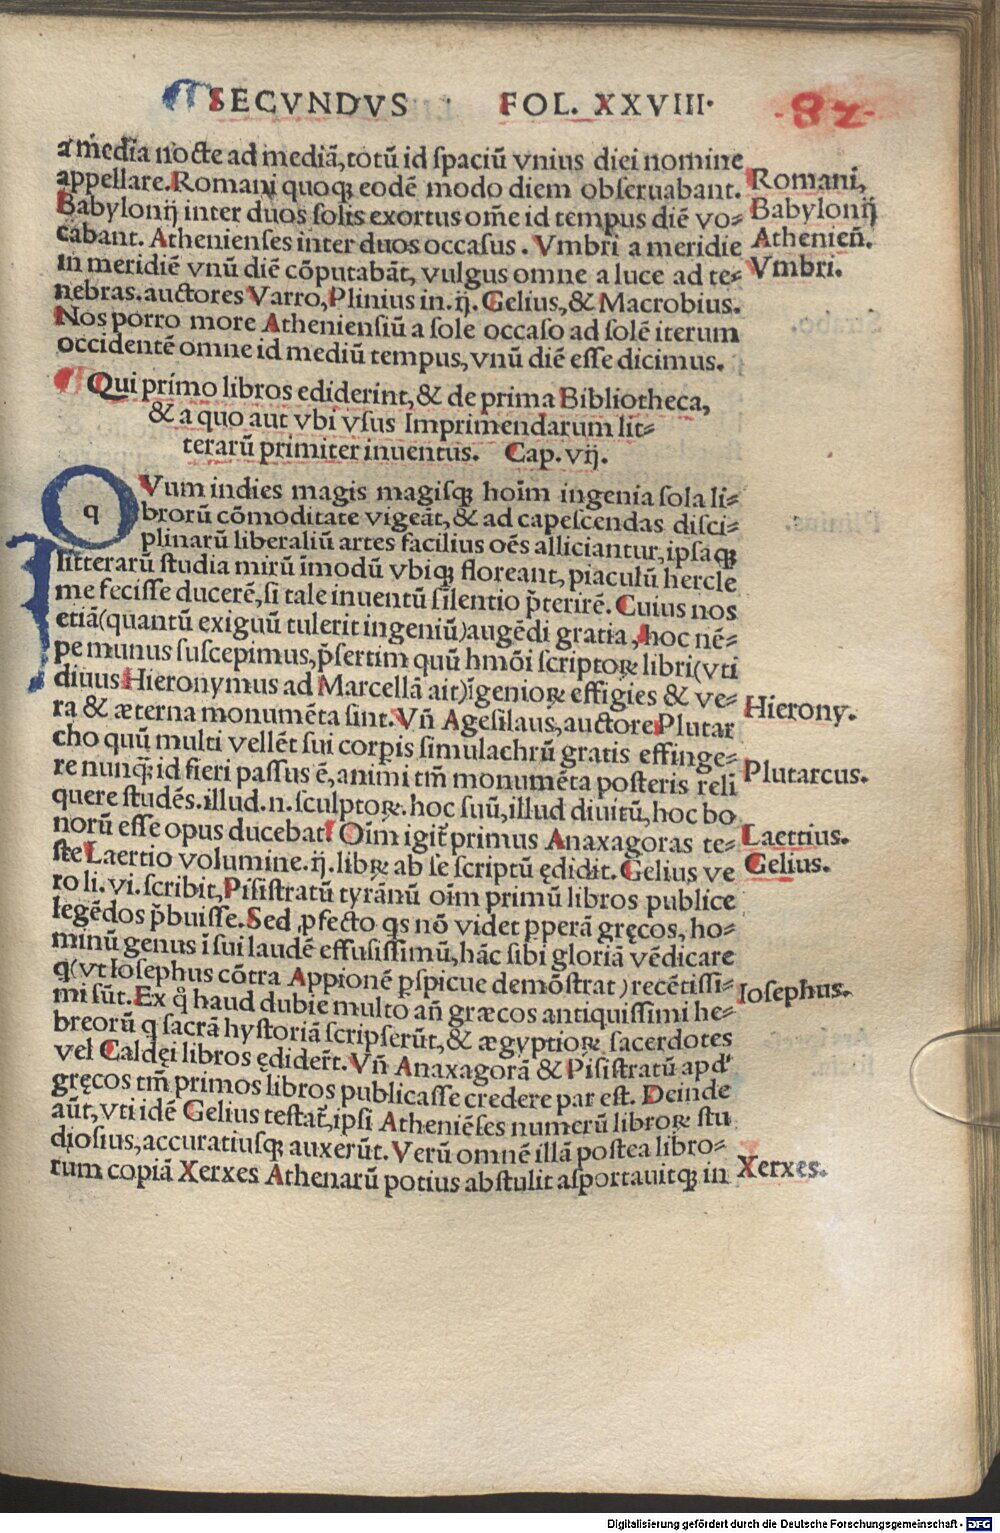 SECVNDVS FOL. XXVIII.
82
a media nocte ad mediã, totũ id spaciũ vnius diei nomine
appellare. Romani quoqȝ eodē modo diem obseruabant.
Babylonij inter duos solis exortus om̄e id tempus diē vo=
cabant. Athenienses inter duos occasus. Vmbri a meridie
in meridiē vnũ diē cõputabãt, vulgus omne a luce ad te=
nebras. auctores Varro, Plinius in. ij. Gelius, & Macrobius.
Nos porro more Atheniensiũ a sole occaso ad solē iterum
occidentē omne id mediũ tempus, vnũ diē esse dicimus.
Romani,
Babylonij
Athenieñ.
Vmbri.
Qui primo libros ediderint, & de prima Bibliotheca,
& a quo aut vbi vsus Imprimendarum lit=
terarũ primiter inuentus. Cap. vij.
q
QVum indies magis magisqȝ hoīm ingenia sola li=
brorũ cõmoditate vigeãt, & ad capescendas disci=
plinarũ liberaliũ artes facilius oēs alliciantur, ipsaqȝ
litterarũ studia mirũ īmodũ vbiqȝ floreant, piaculũ hercle
me fecisse ducerē, si tale inuentũ silentio p̄terirē. Cuius nos
etiã (quantũ exiguũ tulerit ingeniũ) augēdi gratia, hoc nē=
pe munus suscepimus, p̄sertim quũ hmõi scriptoꝝ libri (vti
diuus Hieronymus ad Marcellã ait) īgenioꝝ effigies & ve=
ra & æterna monumēta sint. Vñ Agesilaus, auctore Plutar
cho quũ multi vellēt sui corꝑis simulachrũ gratis effinge=
re nunqȝ id fieri passus ē, animi tm̄ monumēta posteris reli
quere studēs. illud. n. sculptoꝝ. hoc suũ, illud diuitũ, hoc bo
norũ esse opus ducebat. Oīm igit̄ primus Anaxagoras te=
ste Laertio volumine. ij. libꝝ ab se scriptũ ędidit. Gelius ve
ro li. vi. scribit, Pisistratũ tyrãnũ oīm primũ libros publice
legēdos p̄buisse. Sed ꝓfecto qs nõ videt ꝑperã gręcos, ho=
minũ genus ī sui laudē effusissimũ, hãc sibi gloriã vēdicare
q̃ (vt Iosephus cõtra Appionē ꝑspicue demõstrat) recētissi=
mi sũt. Ex q̊ haud dubie multo añ græcos antiquissimi he=
breorũ q sacrã hystoriã scripserũt, & ægyptioꝝ sacerdotes
vel Caldęi libros ędider̄t. Vñ Anaxagorã & Pisistratũ apd'
gręcos tm̄ primos libros publicasse credere par est. Deinde
aũt, vti idē Gelius testat̄, ipsi Atheniēses numerũ libroꝝ stu
diosius, accuratiusqȝ auxerũt. Verũ omnē illã postea libro=
rum copiã Xerxes Athenarũ potius abstulit asportauitqȝ in
Hierony.
Plutarcus.
Laertius.
Gelius.
Iosephus.
Xerxes.
Digitalisierung gefördert durch die Deutsche Forschungsgemeinschaft - DFG